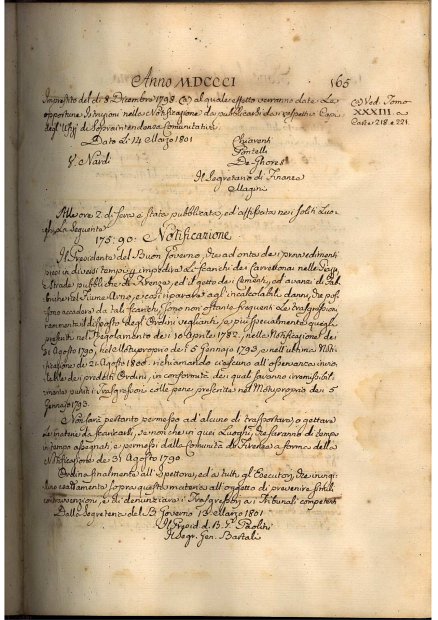 Anno MDCCCI
165
Imprestito del dì 8. Dicembre 1798 (a) al quale effetto verranno date Le
opportune Istruzioni nella Notificazione da pubblicarsi da rispettivi Capi
degli Ufizj di Soprintendenza Comunitativa
(a) Ved. Tomo
XXXIII. a
Carte 218. e 221.
Data Li 14 Marzo 1801
Chiarenti
V. Nardi
Pontelli
De Ghores
Il Segretario di Finanza
Magini
Alle ore 2 di sera è stata pubblicata, ed affissata nei soliti Luo-
ghi La seguente
175. 90. Notificazione
Il Presidente del Buon Governo, che ad onta dei provvedimenti
presi in diversi tempi per impedire Li scarichi dei Carrettoni nelle Piazze
e Strade pubbliche di Firenze, ed il getto dei Cementi, ed avanzi di Fab-
briche nel Fiume Arno, e così riparare agl'incalcolabili danni, che pos-
sono accadere da tali scarichi, sono non ostante frequenti Le trasgressioni
al disposto degl'Ordini veglianti, e più specialmente quegli
prescritti nel Regolamento de 10 Aprile 1782, nella Notificazione de
31 Agosto 1790, nel Motuproprio de 5 Gennajo 1793, e nell'ultima Noti-
ficazione de 21 Agosto 1800 richiamando ciascuno all'osservanza invio-
labile dei predetti Ordini, in conformità dei quali saranno irremissibil-
mente puniti i Trasgressori colle pene prescritte nel Motuproprio de 5
Gennajo 1793.
Non sarà pertanto permesso ad alcuno di trasportare, o gettare
Le materie da scaricarsi, se non che in quei Luoghi, che saranno di tempo
in tempo assegnati, e permessi dalla Comunità di Firenze a forma della
Notificazione de 31 Agosto 1790
Ordina finalmente all'Ispettore, ed a tutti gli Esecutori, che invigi-
lino esattamente sopra questa materia all'oggetto di prevenire simili
contravvenzioni, e di denunziare i Trasgressori ai Tribunali competenti
Dalla Segreteria del B. Governo 13 Marzo 1801
Il Presid. d. B. G.
Il Segr. Gen. Bastali